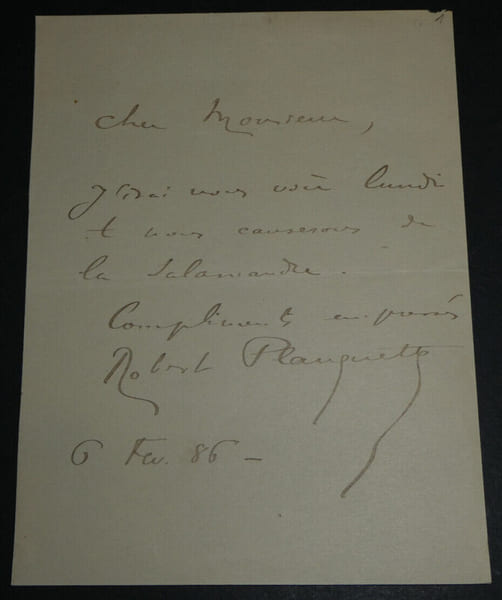 1
cher Monsieur,
J'irai vous voir lundi
et nous causerons de
la Salamandre.
Compliments empressés
Robert Planquette
6 Fev. 86 —